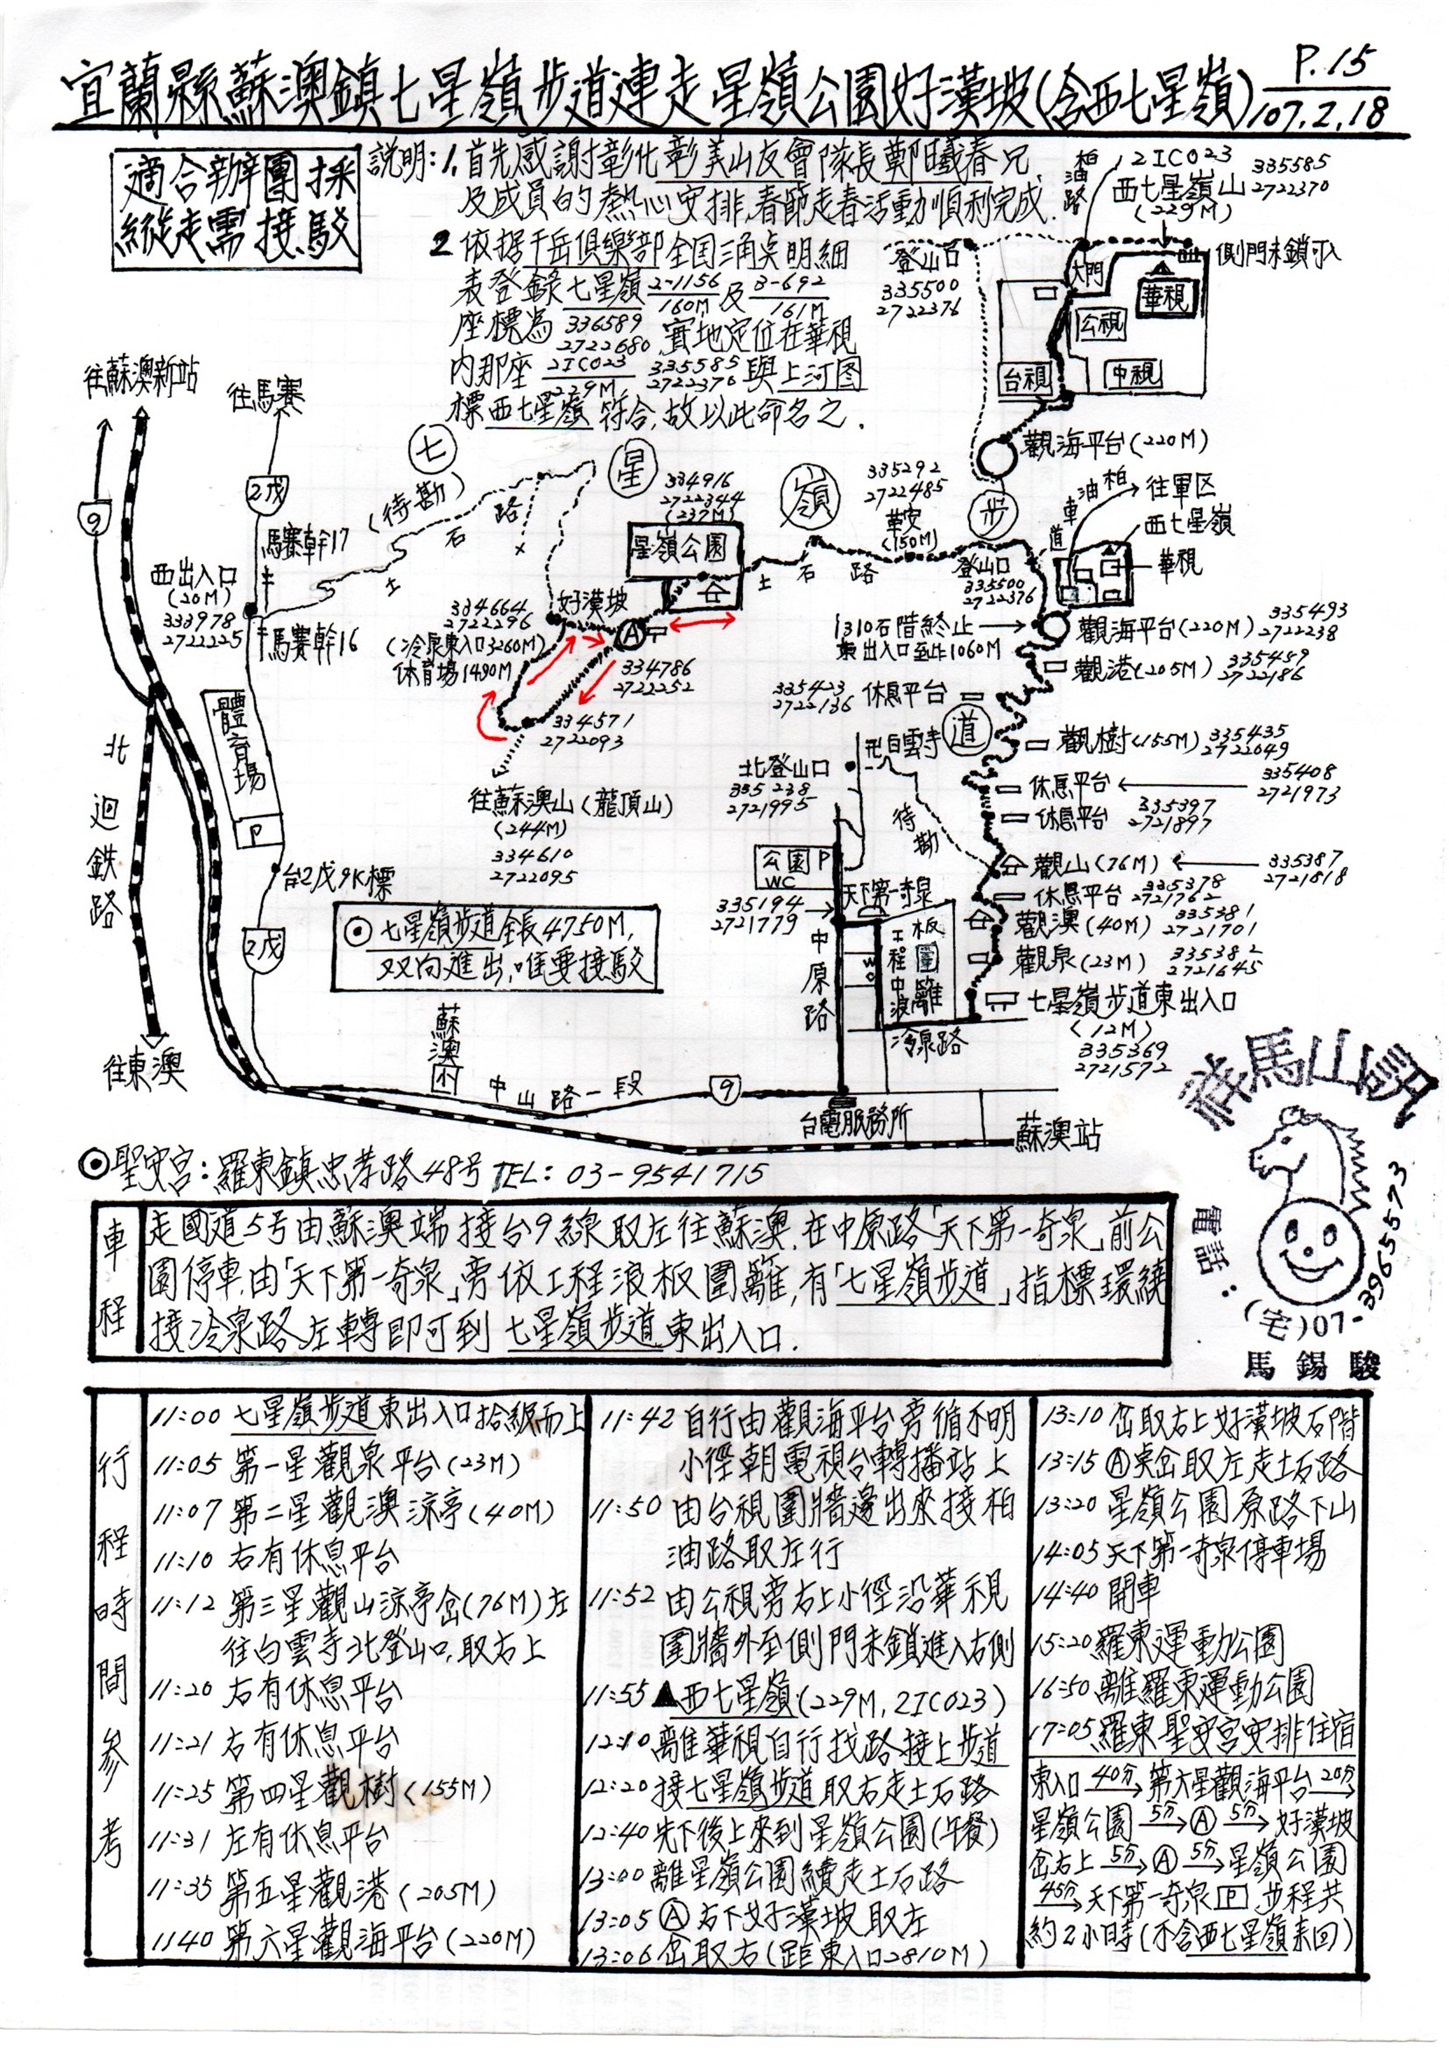 宜蘭縣蘇澳鎮七星嶺步道連走星嶺公園好漢坡(含西七星嶺)
P.15
107.2.18
適合辦團採
縱走需接駁
説明:1.首先感謝彰化彰美山友會隊長鄭曦春兄
及成員的熱心安排,春節走春活動順利完成.
2.依据千岳俱樂部全国三角点明細
表登錄七星嶺 2-1156 160M 及 3-692 161M
座標為 336589 2722680 實地定位在華視
內那座 2IC023 229M, 335585 2722376 與上河图
標西七星嶺符合,故以此命名之.
柏油路
2IC023
335585
2722370
西七星嶺山
(229M)
側門未鎖可入
大門
華視
公視
台視
中視
登山口
335500
2722376
觀海平台(220M)
往蘇澳新站
往馬賽
9
2戊
七
星
嶺
步
道
(待勘)
土石路
馬賽幹17
西出入口
(20M)
333978
2722225
馬賽幹16
334916
2722344
(237M)
星嶺公園
335292
2722485
華安
(150M)
土石路
登山口
335500
2722376
車道
柏油
往軍区
西七星嶺
華視
好漢坡
334664
2722296
(冷泉東入口3260M)
体育場1490M
A
334786
2722252
334571
2722093
往蘇澳山(龍頂山)
(244M)
334610
2722095
1310石階終止
東出入口至此1060M
觀海平台(220M)
335493
2722238
觀港(205M)
335459
2722186
335423
2722136
休息平台
觀樹(155M)
335435
2722049
休息平台
335408
2721973
休息平台
335397
2721897
觀山(76M)
335387
2721818
休息平台
335378
2721762
觀澳(40M)
335381
2721701
觀泉(23M)
335382
2721645
七星嶺步道東出入口
(12M)
335369
2721572
卍白雲寺
北登山口
335238
2721995
待勘
公園P
WC
天下第一奇泉
335194
2721779
中原路
工程中浪板圍籬
WC
冷泉路
體育場
P
台2戊9K標
2戊
北迴鉄路
往東澳
⊙七星嶺步道全長4750M,
双向進出,唯要接駁
蘇澳
小
中山路一段
9
台電服務所
蘇澳站
⊙聖安宮:羅東鎮忠孝路48号 TEL:03-9541715
祥馬山訊
電話:
(宅)07-3965573
馬錫駿
車程
走國道5号由蘇澳端接台9線取左往蘇澳,在中原路「天下第一奇泉」前公
園停車,由「天下第一奇泉」旁依工程浪板圍籬,有「七星嶺步道」指標環繞
接冷泉路左轉即可到七星嶺步道東出入口.
行程時間參考
11:00 七星嶺步道東出入口拾級而上
11:05 第一星觀泉平台(23M)
11:07 第二星觀澳涼亭(40M)
11:10 右有休息平台
11:12 第三星觀山涼亭岔(76M)左
往白雲寺北登山口,取右上
11:20 右有休息平台
11:21 右有休息平台
11:25 第四星觀樹(155M)
11:31 左有休息平台
11:35 第五星觀港(205M)
1140 第六星觀海平台(220M)
11:42 自行由觀海平台旁循不明
小徑朝電視台轉播站上
11:50 由台視圍牆邊出來接柏
油路取左行
11:52 由公視旁右上小徑沿華視
圍牆外至側門未鎖進入右側
11:55 ▲西七星嶺(229M,2IC023)
12:10 離華視自行找路接上步道
12:20 接七星嶺步道取右走土石路
12:40 先下後上來到星嶺公園(午餐)
13:00 離星嶺公園續走土石路
13:05 Ⓐ右下好漢坡取左
13:06 岔取右(距東入口2810M)
13:10 岔取右上好漢坡石階
13:15 Ⓐ点岔取左走土石路
13:20 星嶺公園原路下山
14:05 天下第一奇泉停車場
14:40 開車
15:20 羅東運動公園
16:50 離羅東運動公園
17:05 羅東聖安宮安排住宿
東入口 40分→ 第六星觀海平台 20分→
星嶺公園 5分→ Ⓐ 5分→ 好漢坡
岔右上 5分→ Ⓐ 5分→ 星嶺公園
45分→ 天下第一奇泉 P 步程共
約2小時(不含西七星嶺來回)